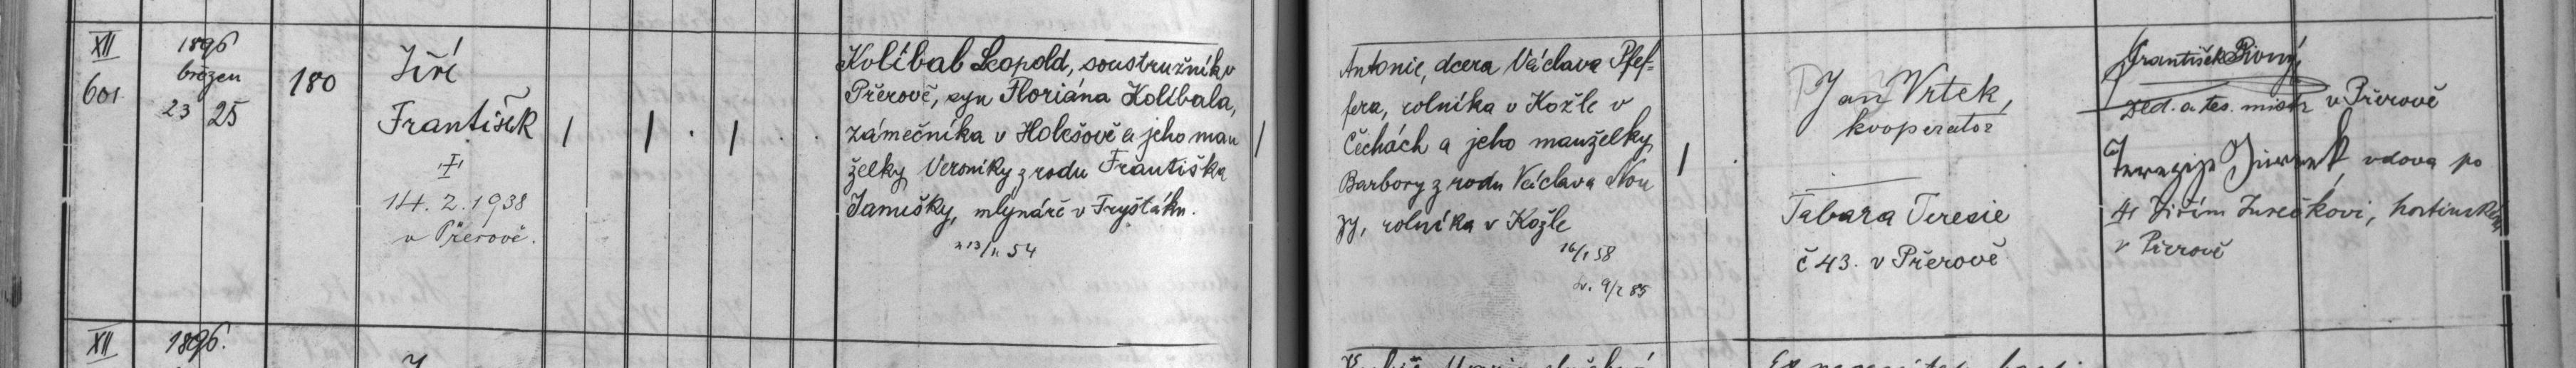 XII
601
1896
březen
23 25
180
Jiří
František
†
14. 2. 1938
v Přerově.
1 1 . 1 . .
Kolibal Leopold, soustružník v
Přerově, syn Floriána Kolibala,
zámečníka v Holešově a jeho man
želky Veroniky z rodu Františka
Janušky, mlynáře v Fryštáku.
54
1
Antonie, dcera Václava Pfef-
fera, rolníka v Kožle v
Čechách a jeho manželky
Barbory z rodu Václava Nou
zy, rolníka v Kožle
16/1 58
9/2 85
1 .
Jan Vrtek,
kooperator
Tabara Teresie
č 43. v Přerově
František
zed. a tes. mistr v Přerově
vdova po
† Jiřím Jurečkovi, hostinském
v Přerově
XII
1896.